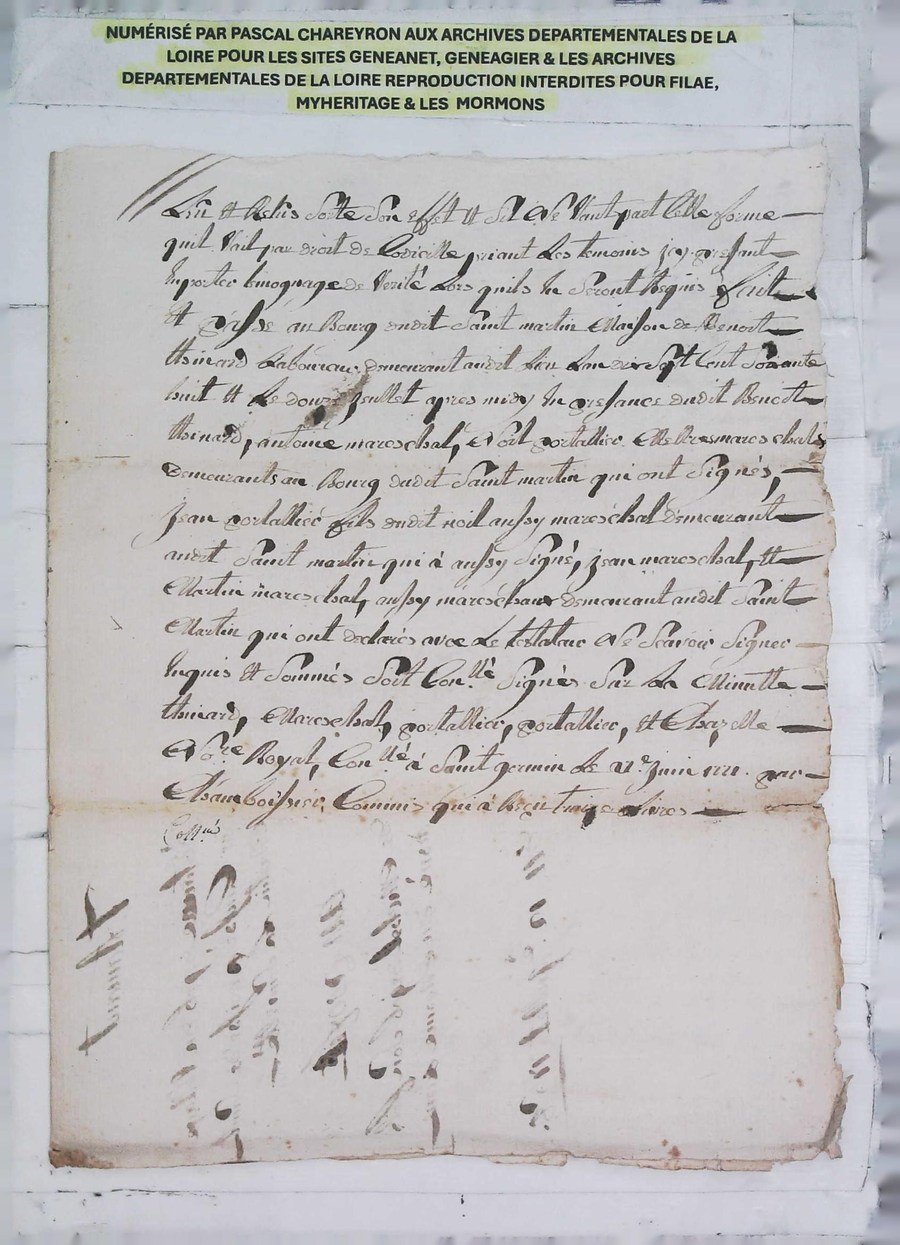 NUMÉRISÉ PAR PASCAL CHAREYRON AUX ARCHIVES DEPARTEMENTALES DE LA
LOIRE POUR LES SITES GENEANET, GENEAGIER & LES ARCHIVES
DEPARTEMENTALES DE LA LOIRE REPRODUCTION INTERDITES POUR FILAE,
MYHERITAGE & LES MORMONS
sorte son effet et sil ne vaut par telle forme
quil vail par droit de Codicille priant les temoins icy presant
En porter temognage de verité Lors quils En seront Requis fait
et passé au Bourg dudit Saint martin Maison de Benoit
thinard Laboureur demeurant audit Lieu Lan mil sept Cent soixante
huit et Le douze juillet apres midy En presance dudit Benoit
thinard, antoine mareschal, noil portallier Mestres mareschals
demeurants au Bourg dudit Saint martin qui ont signés,
jean portallier fils dudit noil aussy mareschal demeurant
audit Saint martin qui à aussy signé, jean mareschal, et
Martin mareschal, aussy mareschaux demeurant audit Saint
Martin qui ont declarés avec Le testateur Ne scavoir signer
Enquis et sommés soit Con.llé signés sur La Minutte
thinard, Mareschal, portallier, portallier, et Chazelle
No.re Royal, Con.llé à Saint germin Le juin par
Chamboissier Commis qui à Reçu treize livres